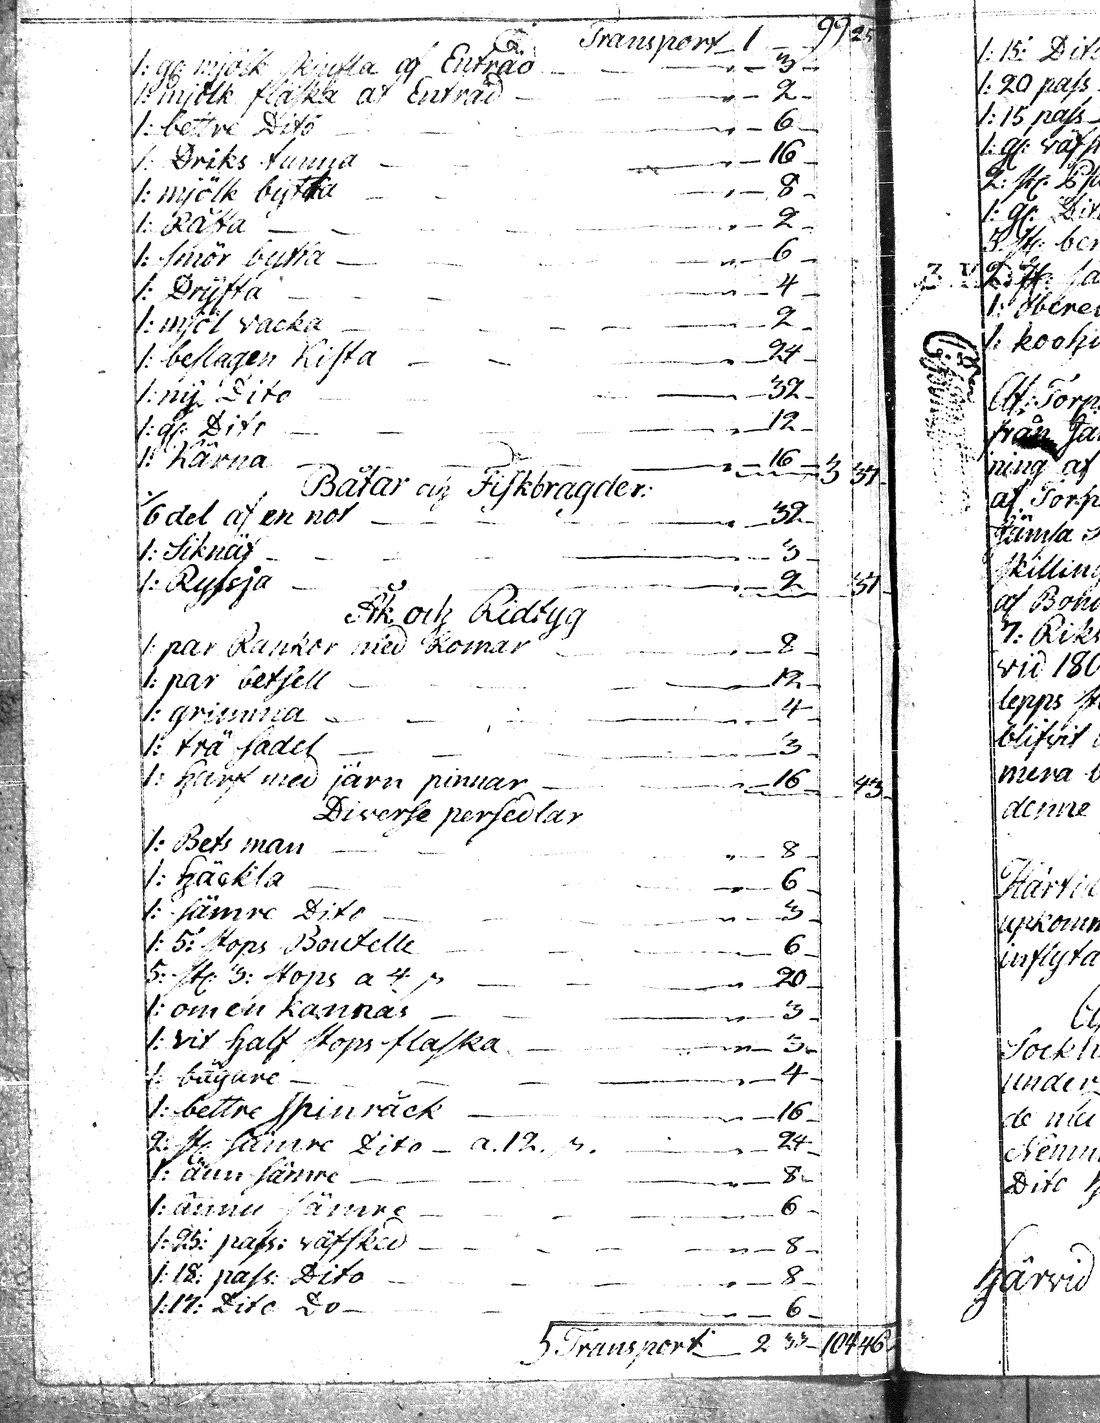 Transport 1 99 25
1: gl: mjölk skjulla af Enträd 3
1: mjölk flaska at Enträd 2
1: bettre Dito 6
1: Driks tunna 16
1: mjölk bytta 8
1: Råtta 2
1: smör bytta 6
1: Dryfta 4
1: mjöl vacka 2
1: beslagen Kista 24
1: nÿ Dito 32
1: gl: Dito 12
1: Kärna 16 3 37
Båtar och Fiskbragder:
1/6 del af en not 32
1: Siknät 3
1: Ryssja 2 37
Åk och Ridtyg
1: par Rankor med Komar 8
1: par betsell 12
1: grimma 4
1: trä sadel 3
1: harf med järn pinnar 16 43
Diverse persedlar
1: Bets man 8
1: häckla 6
1: sämre Dito 3
1: 5: stops Boutelle 6
5: st: 3: stops a 4 s 20
1: om en kannas 3
1: vit half stops flaska 3
1: bägare 4
1: bettre spinråck 16
2: st: sämre Dito a. 12. s. 24
1: änn sämre 8
1: ännu sämre 6
1: 25: pass: väfsked 8
1: 18: pass: Dito 8
1: 17: Dito Do 6
Transport 2 33 104 46
1: 15: Dito
1: 20 pass
1: 15 pass
1: gl: väfs
2: st:
1: gl: Dito
3: st: ber
2: st: sa
1: obere
1: kooh
Af: Torp
från
ning af
af Torp
Jämta
skilling
af Bohu
7: Riks
vid 180
lepps
blifvit
mera
denne
Härtil
upkomm
inflyta
Sockn
under
de me
Nemn
Dito
härvid